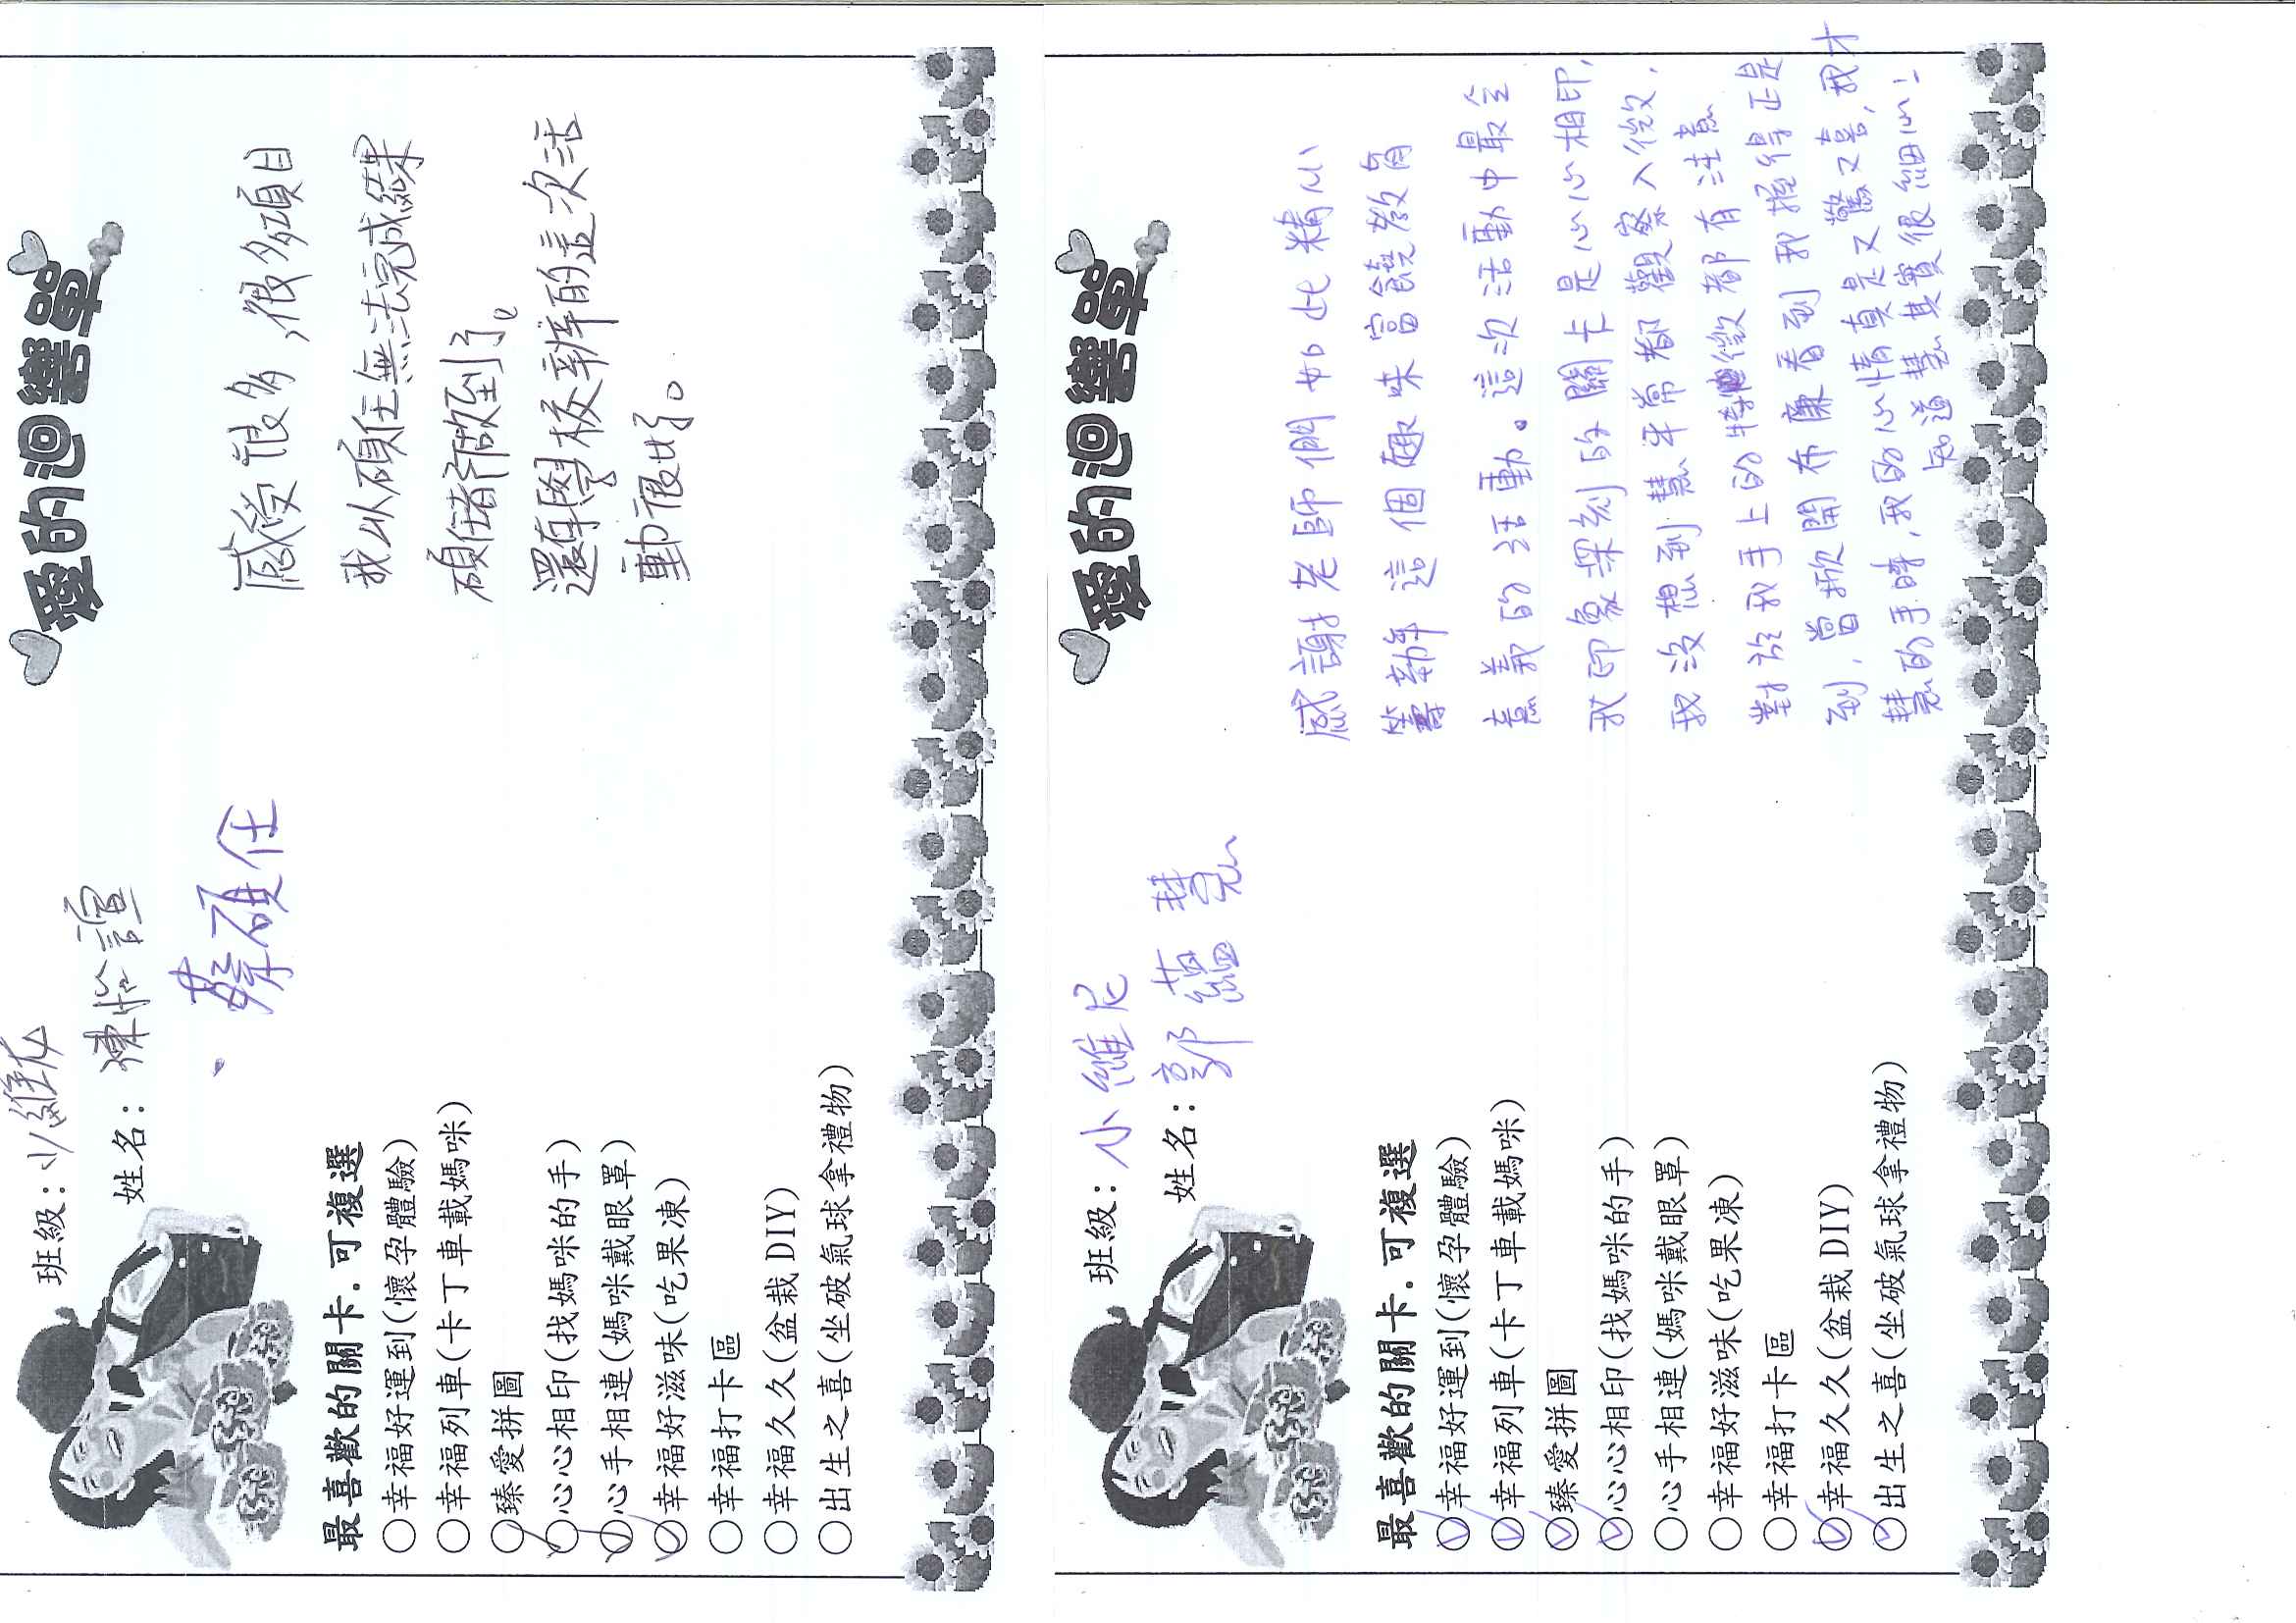 愛的迴響單
班級：小維尼
姓名：陳怡諠
蔡碩任
最喜歡的關卡．可複選
○幸福好運到(懷孕體驗)
○幸福列車(卡丁車載媽咪)
○臻愛拼圖
○心心相印(找媽咪的手)
○心手相連(媽咪戴眼罩)
○幸福好滋味(吃果凍)
○幸福打卡區
○幸福久久(盆栽DIY)
○出生之喜(坐破氣球拿禮物)
感受很多，很多項目
我以碩任無法完成結果
碩任都做到了。
還有學校辦的這次活
動很好。
愛的迴響單
班級：小維尼
姓名：郭蘊慧
最喜歡的關卡．可複選
○幸福好運到(懷孕體驗)
○幸福列車(卡丁車載媽咪)
○臻愛拼圖
○心心相印(找媽咪的手)
○心手相連(媽咪戴眼罩)
○幸福好滋味(吃果凍)
○幸福打卡區
○幸福久久(盆栽DIY)
○出生之喜(坐破氣球拿禮物)
感謝老師們如此精心
籌辦這個趣味富饒教育
意義的活動。這次活動中最令
我印象深刻的關卡是心心相印，
我沒想到慧平常都觀察入微，
對於我手上的特徵都有注意
到，當掀開布簾看到我握得正是
慧的手時，我的心情真是又驚又喜，我才
知道慧其實很細心！